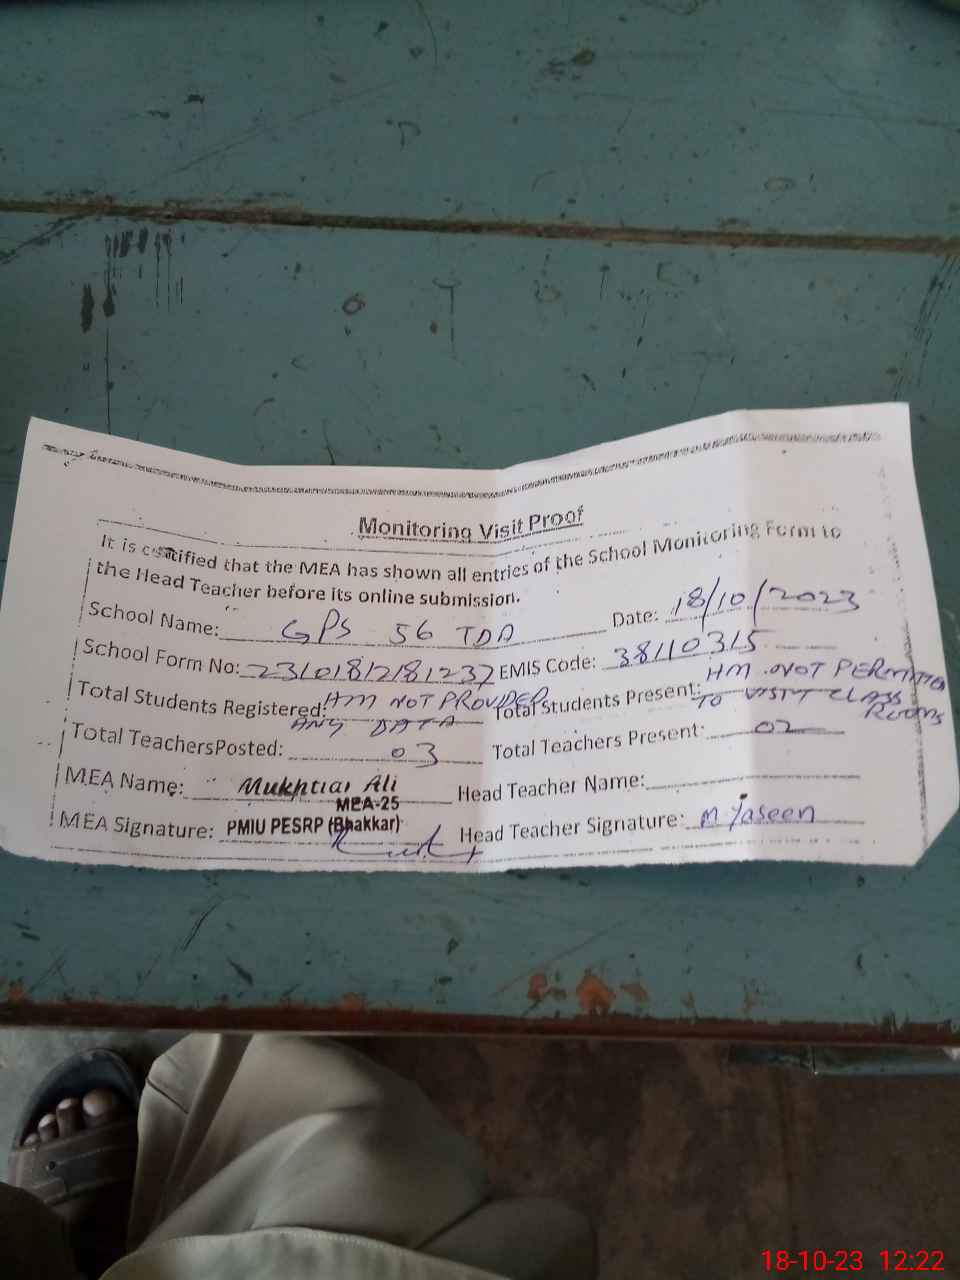 Monitoring Visit Proof
It is certified that the MEA has shown all entries of the School Monitoring Form to
the Head Teacher before its online submission.
School Name: GPS 56 TDA Date: 18/10/2023
School Form No: EMIS Code: 38110315
Total Students Registered: HM NOT PROVIDER ANY DATA Total Students Present: HM NOT PERMITTED TO VISIT CLASS ROOMS
Total TeachersPosted: 03 Total Teachers Present: 02
MEA Name: Mukhtiar Ali Head Teacher Name:
MEA-25
MEA Signature: PMIU PESRP (Bhakkar) Head Teacher Signature: M Yaseen
18-10-23 12:22